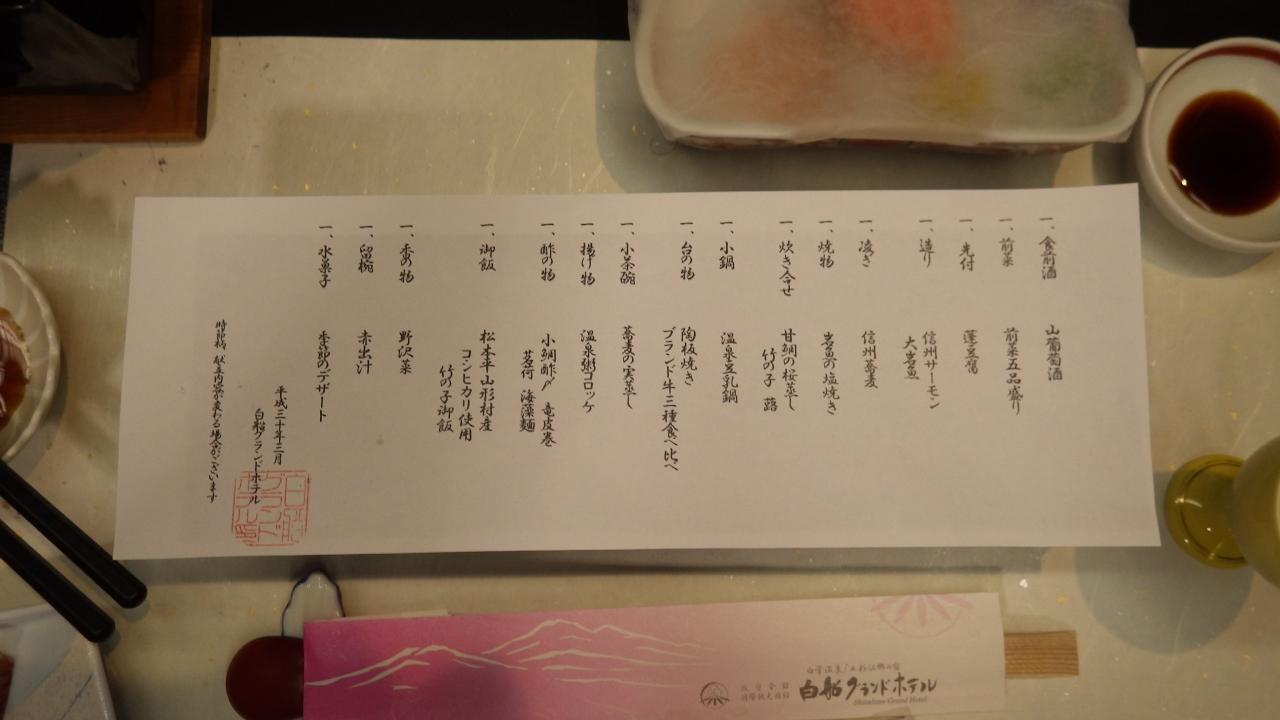 一、食前酒 山葡萄酒
一、前菜 前菜五品盛り
一、先付 蓬豆腐
一、造り 信州サーモン
大岩魚
一、凌ぎ 信州蕎麦
一、焼物 岩魚の塩焼き
一、炊き合せ 甘鯛の桜蒸し
竹の子 蕗
一、小鍋 温泉豆乳鍋
一、台の物 陶板焼き
ブランド牛三種食べ比べ
一、小茶碗 蕎麦の実蒸し
一、揚げ物 温泉粥コロッケ
一、酢の物 小鯛酢〆 竜皮巻
茗荷 海藻麺
一、御飯 松本平山形村産
コシヒカリ使用
竹の子御飯
一、香の物 野沢菜
一、留椀 赤出汁
一、水菓子 季節のデザート
平成三十年三月
白船グランドホテル
時節柄、献立内容が変わる場合がございます
白船グランドホテル
Shirafune Grand Hotel